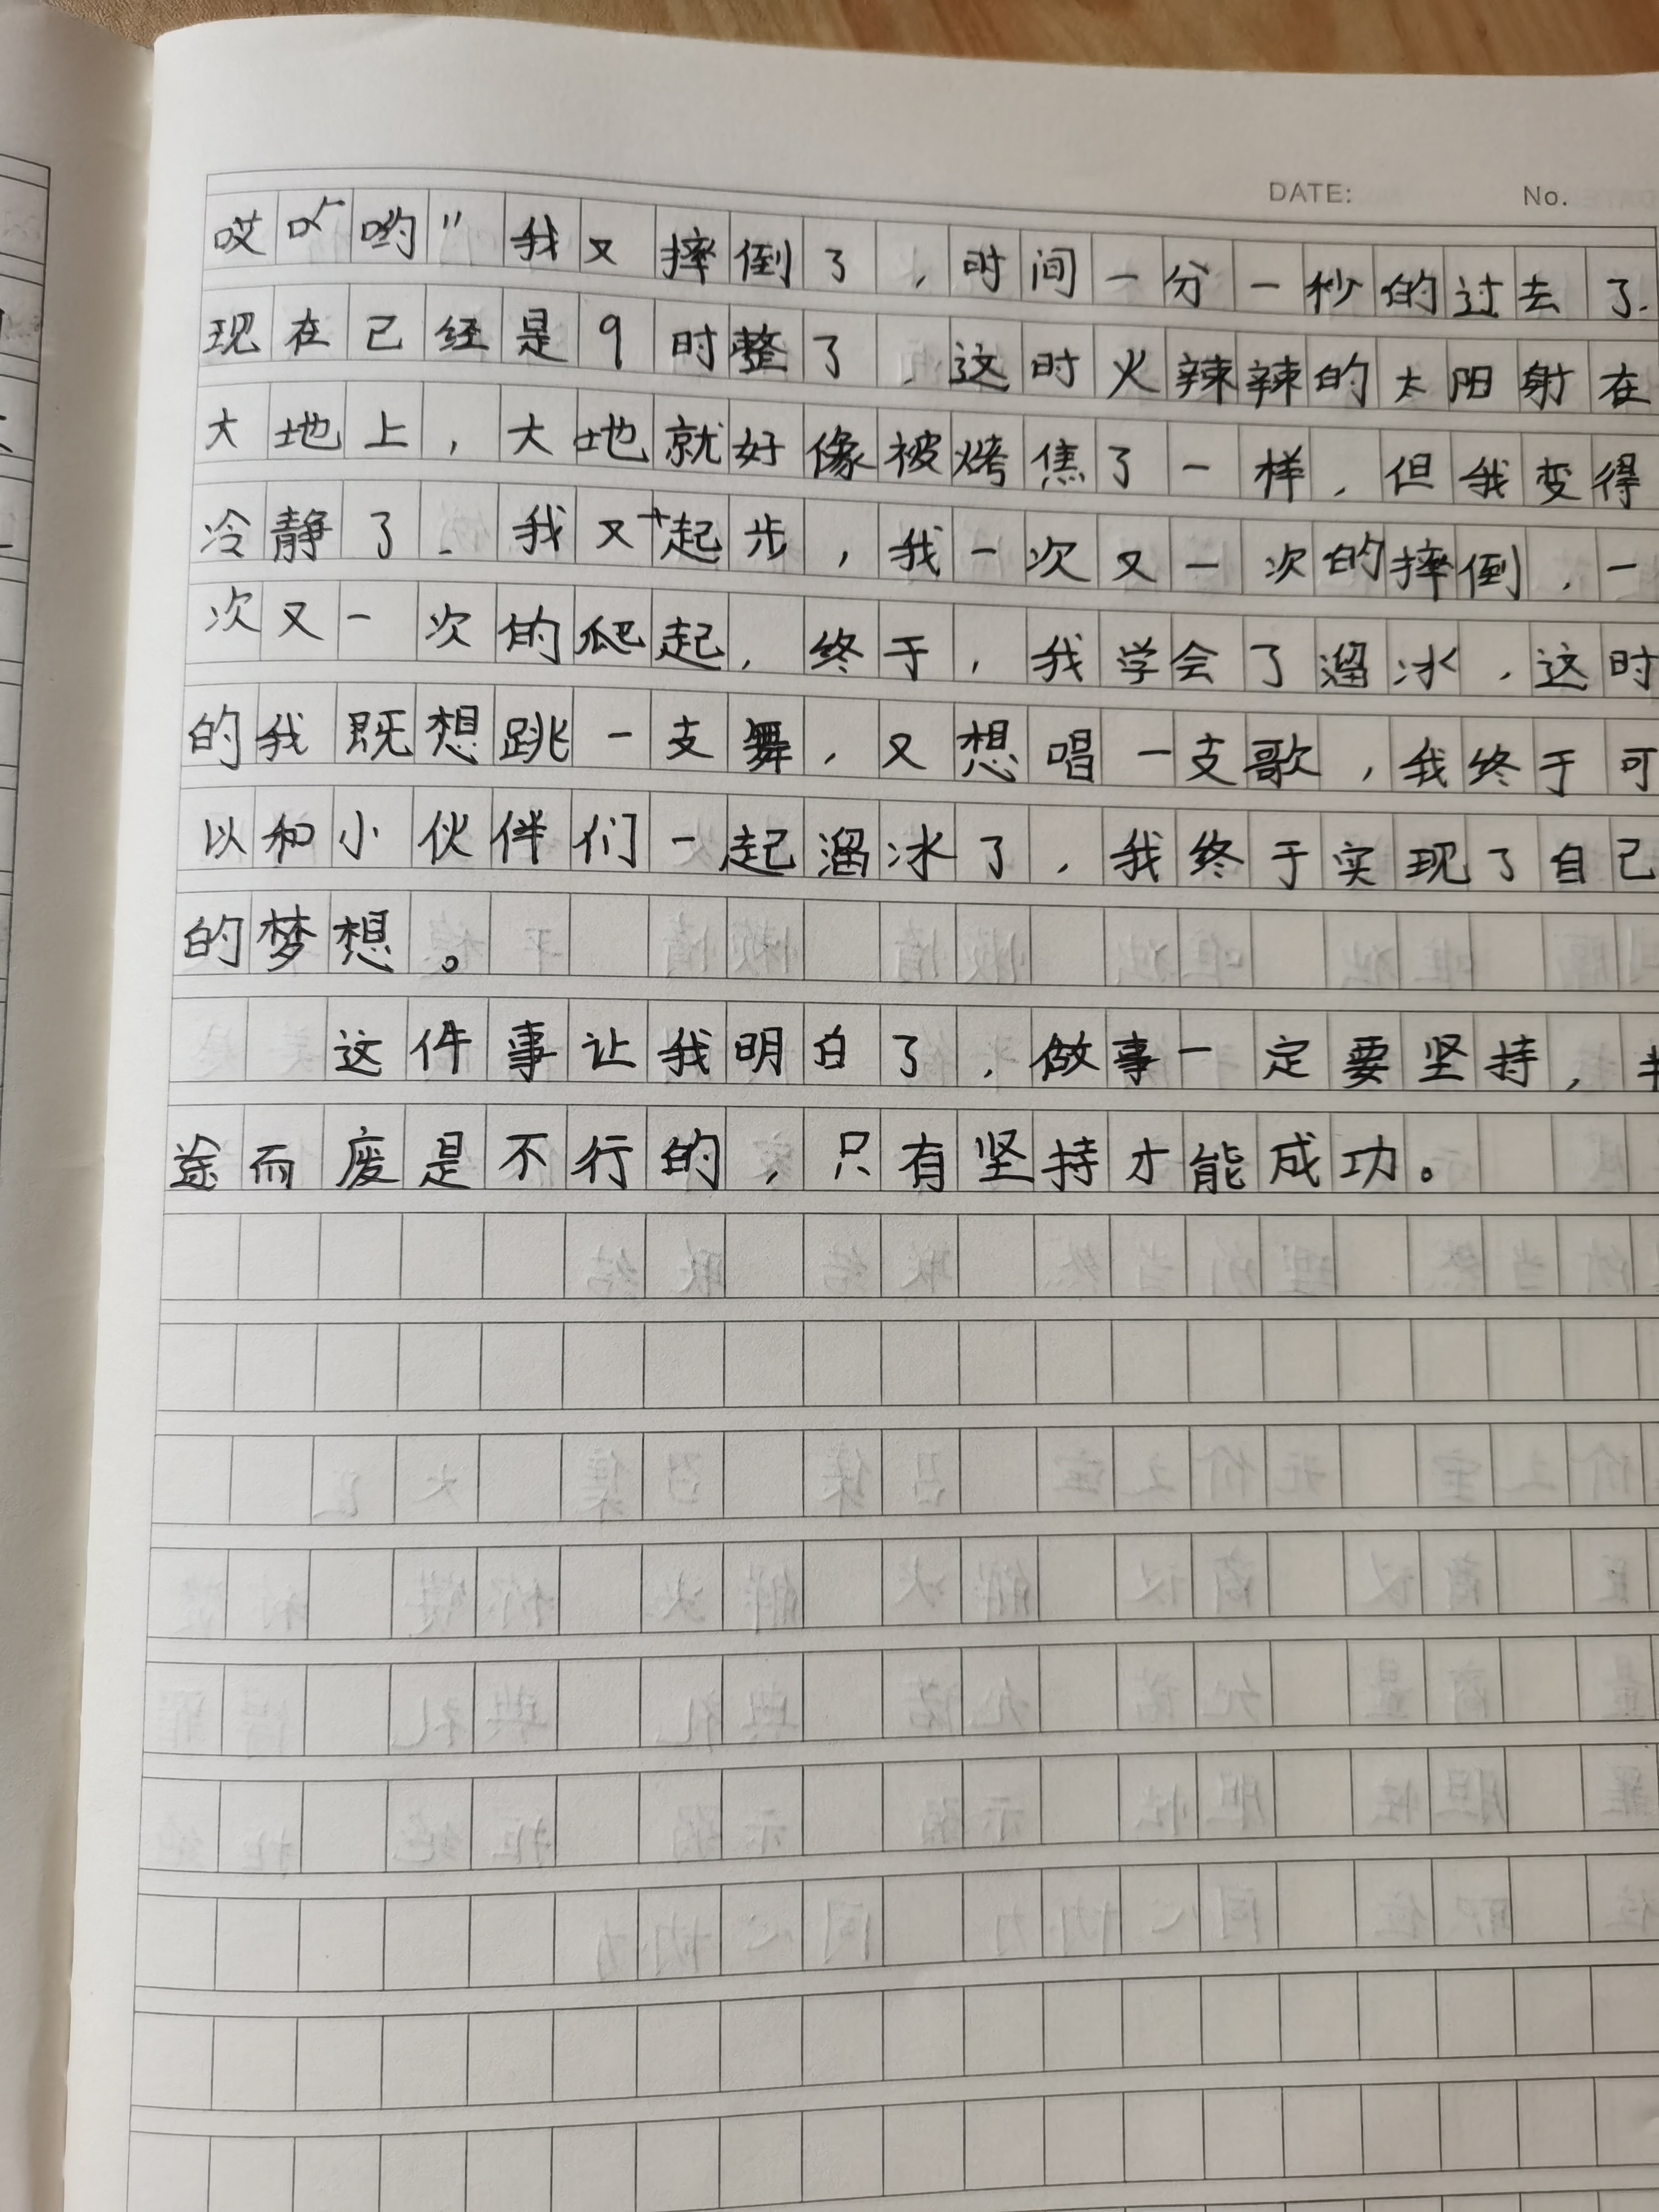 DATE: No.
哎吖哟”我又摔倒了,时间一分一秒的过去了.
现在已经是9时整了,这时火辣辣的太阳射在
大地上,大地就好像被烤焦了一样,但我变得
冷静了.我又起步,我一次又一次的摔倒,一
次又一次的爬起,终于,我学会了溜冰,这时
的我既想跳一支舞,又想唱一支歌,我终于可
以和小伙伴们一起溜冰了,我终于实现了自己
的梦想。
这件事让我明白了,做事一定要坚持,
途而废是不行的,只有坚持才能成功。